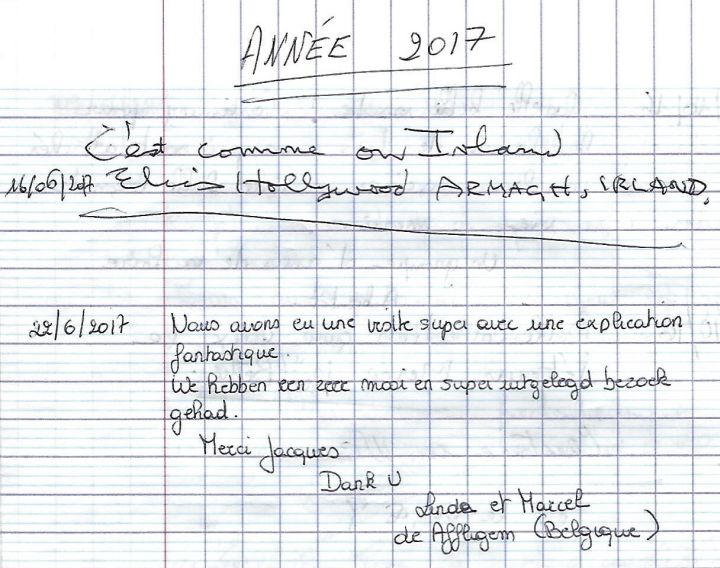 ANNÉE 2017
C'est comme on Irland
16/06/2017 Elvis Hollywood ARMAGH, IRLAND.
22/6/2017 Nous avons eu une visite super avec une explication
fantastique.
We hebben een zeer mooi en super uitgelegd bezoek
gehad.
Merci Jacques
Dank U
Linda et Marcel
de Affligem (Belgique)